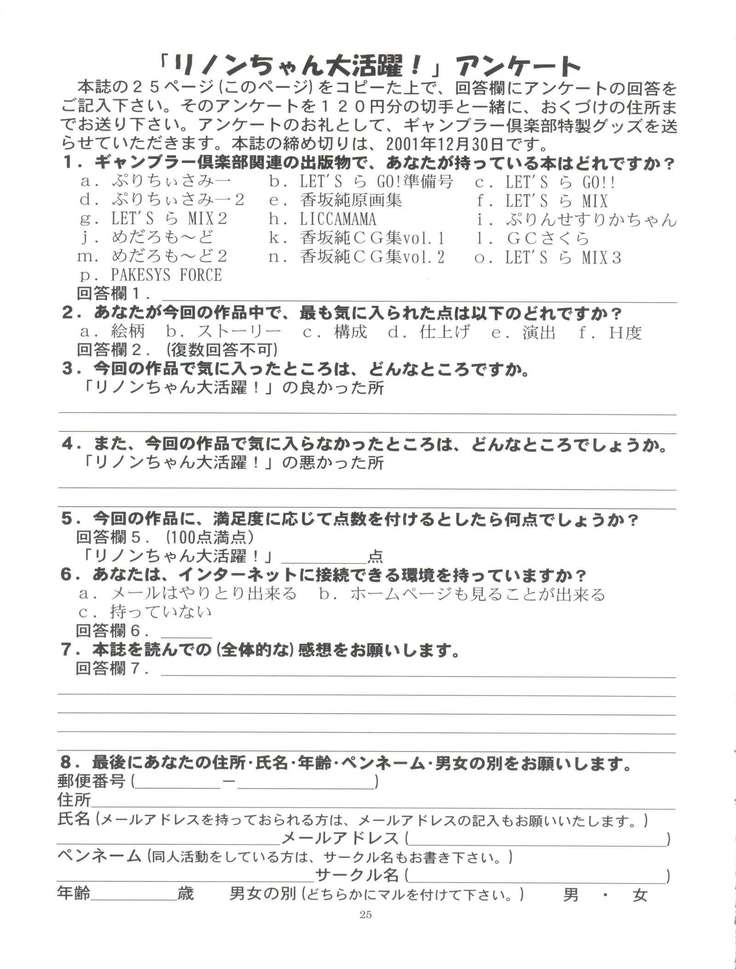 「リノンちゃん大活躍！」アンケート
本誌の２５ページ(このページ)をコピーた上で、回答欄にアンケートの回答を
ご記入下さい。そのアンケートを１２０円分の切手と一緒に、おくづけの住所ま
でお送り下さい。アンケートのお礼として、ギャンブラー倶楽部特製グッズを送
らせていただきます。本誌の締め切りは、2001年12月30日です。
１．ギャンブラー倶楽部関連の出版物で、あなたが持っている本はどれですか？
ａ．ぷりちぃさみー　ｂ．LET'S ら GO!準備号　ｃ．LET'S ら GO!!
ｄ．ぷりちぃさみー２　ｅ．香坂純原画集　ｆ．LET'S ら MIX
ｇ．LET'S ら MIX２　ｈ．LICCAMAMA　ｉ．ぷりんせすりかちゃん
ｊ．めだろも〜ど　ｋ．香坂純ＣＧ集vol.1　ｌ．ＧＣさくら
ｍ．めだろも〜ど２　ｎ．香坂純ＣＧ集vol.2　ｏ．LET'S ら MIX３
ｐ．PAKESYS FORCE
回答欄１．
２．あなたが今回の作品中で、最も気に入られた点は以下のどれですか？
ａ．絵柄　ｂ．ストーリー　ｃ．構成　ｄ．仕上げ　ｅ．演出　ｆ．Ｈ度
回答欄２．(復数回答不可)
３．今回の作品で気に入ったところは、どんなところですか。
「リノンちゃん大活躍！」の良かった所
４．また、今回の作品で気に入らなかったところは、どんなところでしょうか。
「リノンちゃん大活躍！」の悪かった所
５．今回の作品に、満足度に応じて点数を付けるとしたら何点でしょうか？
回答欄５．(100点満点)
「リノンちゃん大活躍！」__________点
６．あなたは、インターネットに接続できる環境を持っていますか？
ａ．メールはやりとり出来る　ｂ．ホームページも見ることが出来る
ｃ．持っていない
回答欄６．______
７．本誌を読んでの(全体的な)感想をお願いします。
回答欄７．
８．最後にあなたの住所･氏名･年齢･ペンネーム･男女の別をお願いします。
郵便番号(__________－________________)
住所
氏名(メールアドレスを持っておられる方は、メールアドレスの記入もお願いいたします。)
メールアドレス(______________________________)
ペンネーム(同人活動をしている方は、サークル名もお書き下さい。)
サークル名(______________________________)
年齢__________歳　男女の別(どちらかにマルを付けて下さい。)　男　・　女
25